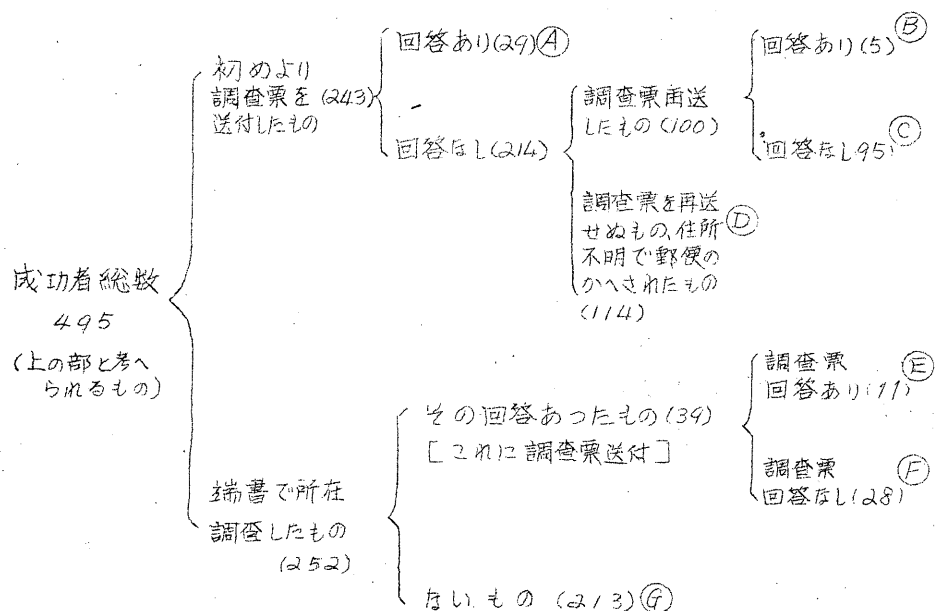 成功者総数
495
(上の部と考へ
られるもの)
初めより
調査票を(243)
送付したもの
回答あり(29)Ⓐ
回答なし(214)
調査票再送
したもの(100)
回答あり(5)Ⓑ
回答なし95)Ⓒ
調査票を再送
せぬもの、住所Ⓓ
不明で郵便の
かへされたもの
(114)
端書で所在
調査したもの
(252)
その回答あったもの(39)
[これに調査票送付]
調査票Ⓔ
回答あり(11)
調査票Ⓕ
回答なし(28)
ないもの(213)Ⓖ